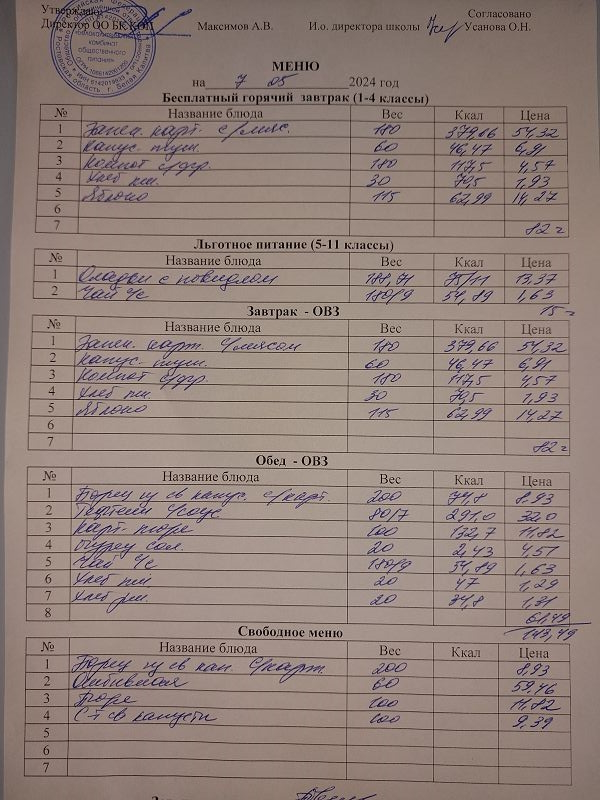 Утверждаю Согласовано
Директор ОО БК КОП Максимов А.В. И.о. директора школы Усанова О.Н.
комбинат
общественного
питания
МЕНЮ
на 7 05 2024 год
Бесплатный горячий завтрак (1-4 классы)
№ Название блюда Вес Ккал Цена
1 Запек. карт. с/мяс. 180 379,66 54,32
2 Капус. туш. 60 46,47 6,91
3 Компот с/фр. 180 117,5 4,57
4 Хлеб пш. 30 70,5 1,93
5 Яблоко 115 62,99 14,27
6
7 82=
Льготное питание (5-11 классы)
Название блюда Вес Ккал Цена
1 Оладьи с повидлом 188,71 13,37
2 Чай ч/с 180/9 1,63
15=
Завтрак - ОВЗ
№ Название блюда Вес Ккал Цена
1 Запек. карт. с/мясом 180 379,66 54,32
2 Капус. туш. 60 46,47 6,91
3 Компот с/фр. 180 117,5 4,57
4 Хлеб пш. 30 70,5 1,93
5 Яблоко 115 62,99 14,27
6
7 82=
Обед - ОВЗ
№ Название блюда Вес Ккал Цена
1 Борщ из св капус. с/карт. 200 74,8 8,93
2 Тефтели с/соус 80/7 291,0 32,0
3 Карт. пюре 100 132,7 11,82
4 Огурец сол. 20 2,43 4,51
5 Чай ч/с 180/9 1,63
6 Хлеб пш 20 47 1,29
7 Хлеб рж. 20 34,8 1,31
8 61,49
143,49
Свободное меню
№ Название блюда Вес Ккал Цена
1 Борщ из св кап. с/карт. 200 8,93
2 Отбивная 60 59.46
3 Пюре 100 11,82
4 С-т св капусты 100 9.39
5
6
7